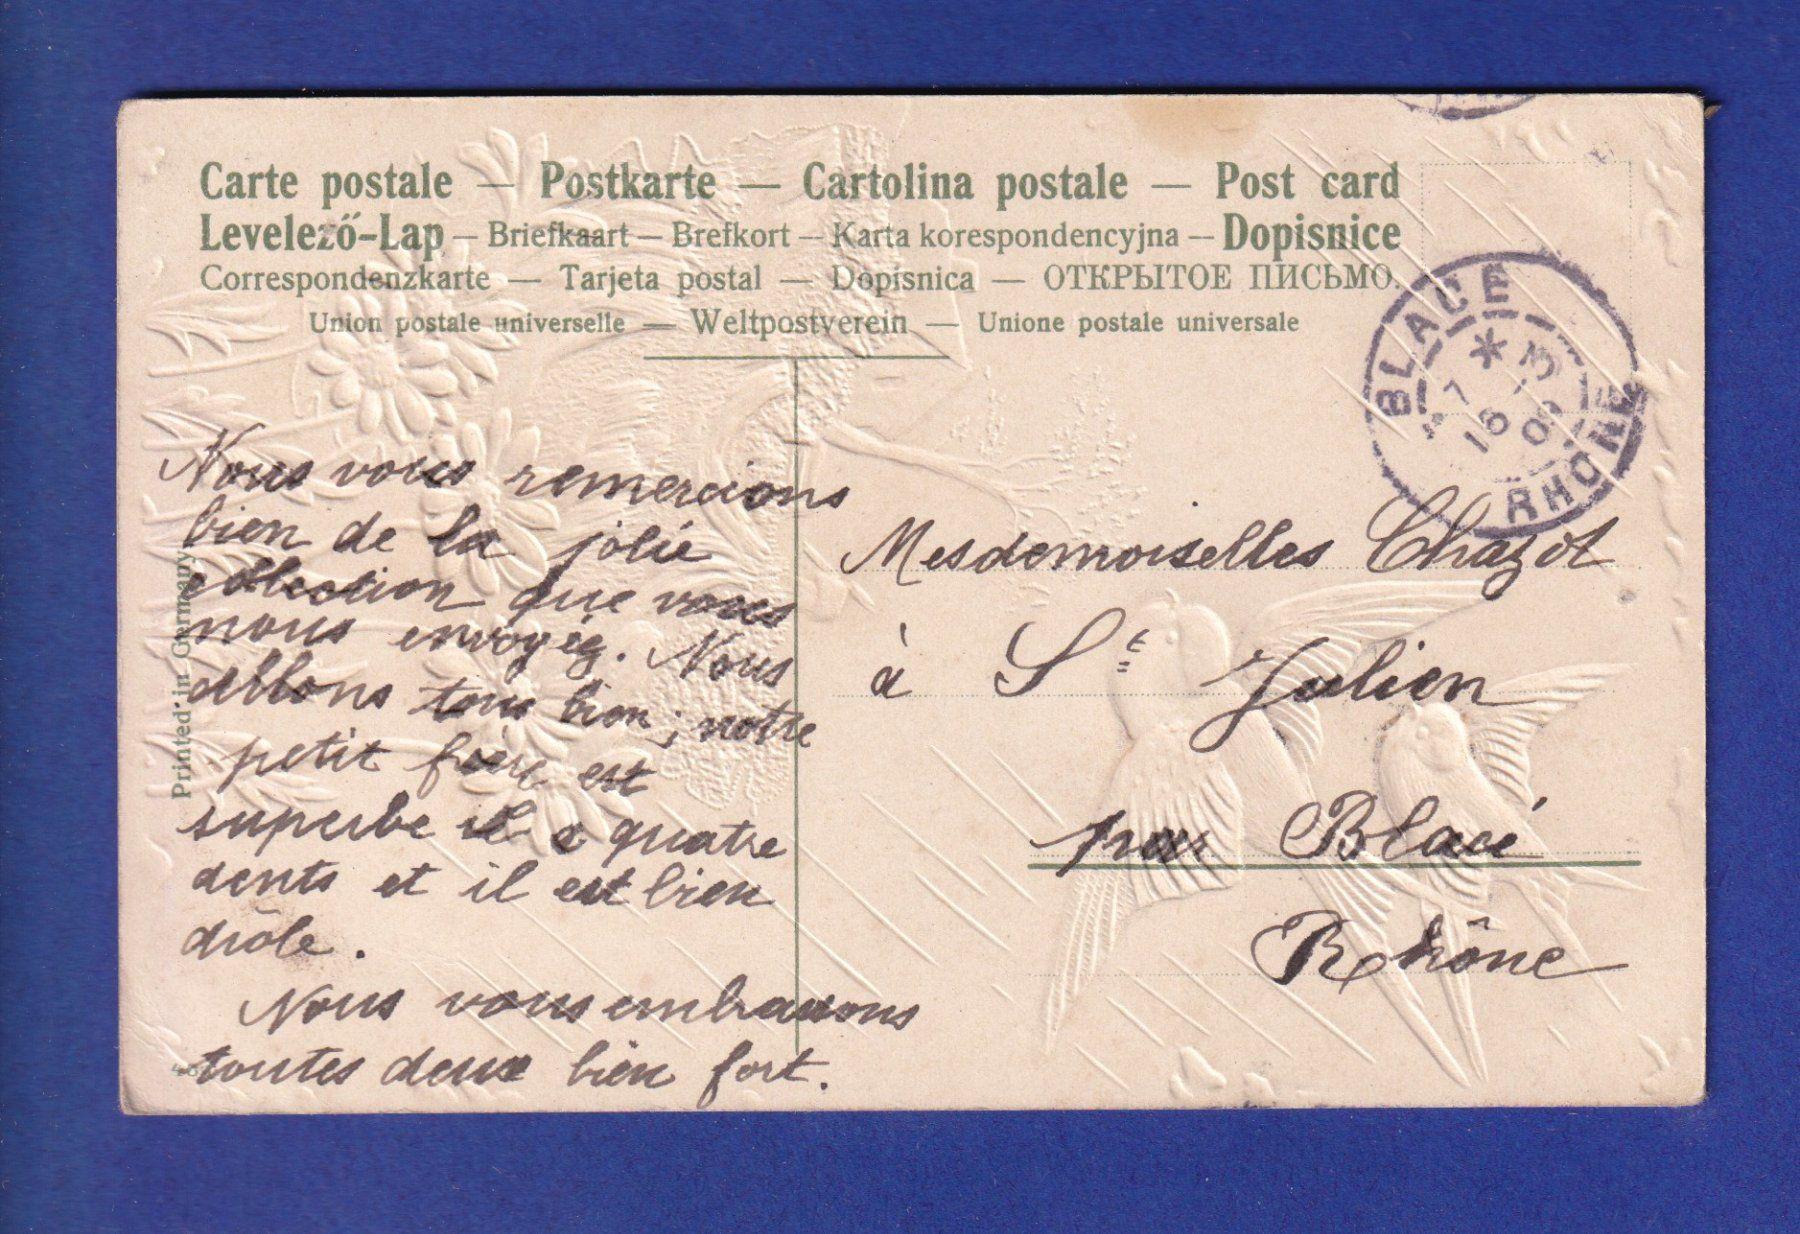 Carte postale — Postkarte — Cartolina postale — Post card
Levelező-Lap — Briefkaart — Brefkort — Karta korespondencyjna — Dopisnice
Correspondenzkarte — Tarjeta postal — Dopisnica — ОТКРЫТОЕ ПИСЬМО.
Union postale universelle — Weltpostverein — Unione postale universale
BLACÉ
* 
16
RHÔNE
Printed in Germany
Nous vous remercions
bien de la jolie
collection que vous
nous envoyéz. Nous
allons tous bien; notre
petit frère est
superbe il a quatre
dents et il est bien
drôle.
Nous vous embrassons
toutes deux bien fort.
Mesdemoiselles Chazot
à St Julien
par Blacé
Rhône